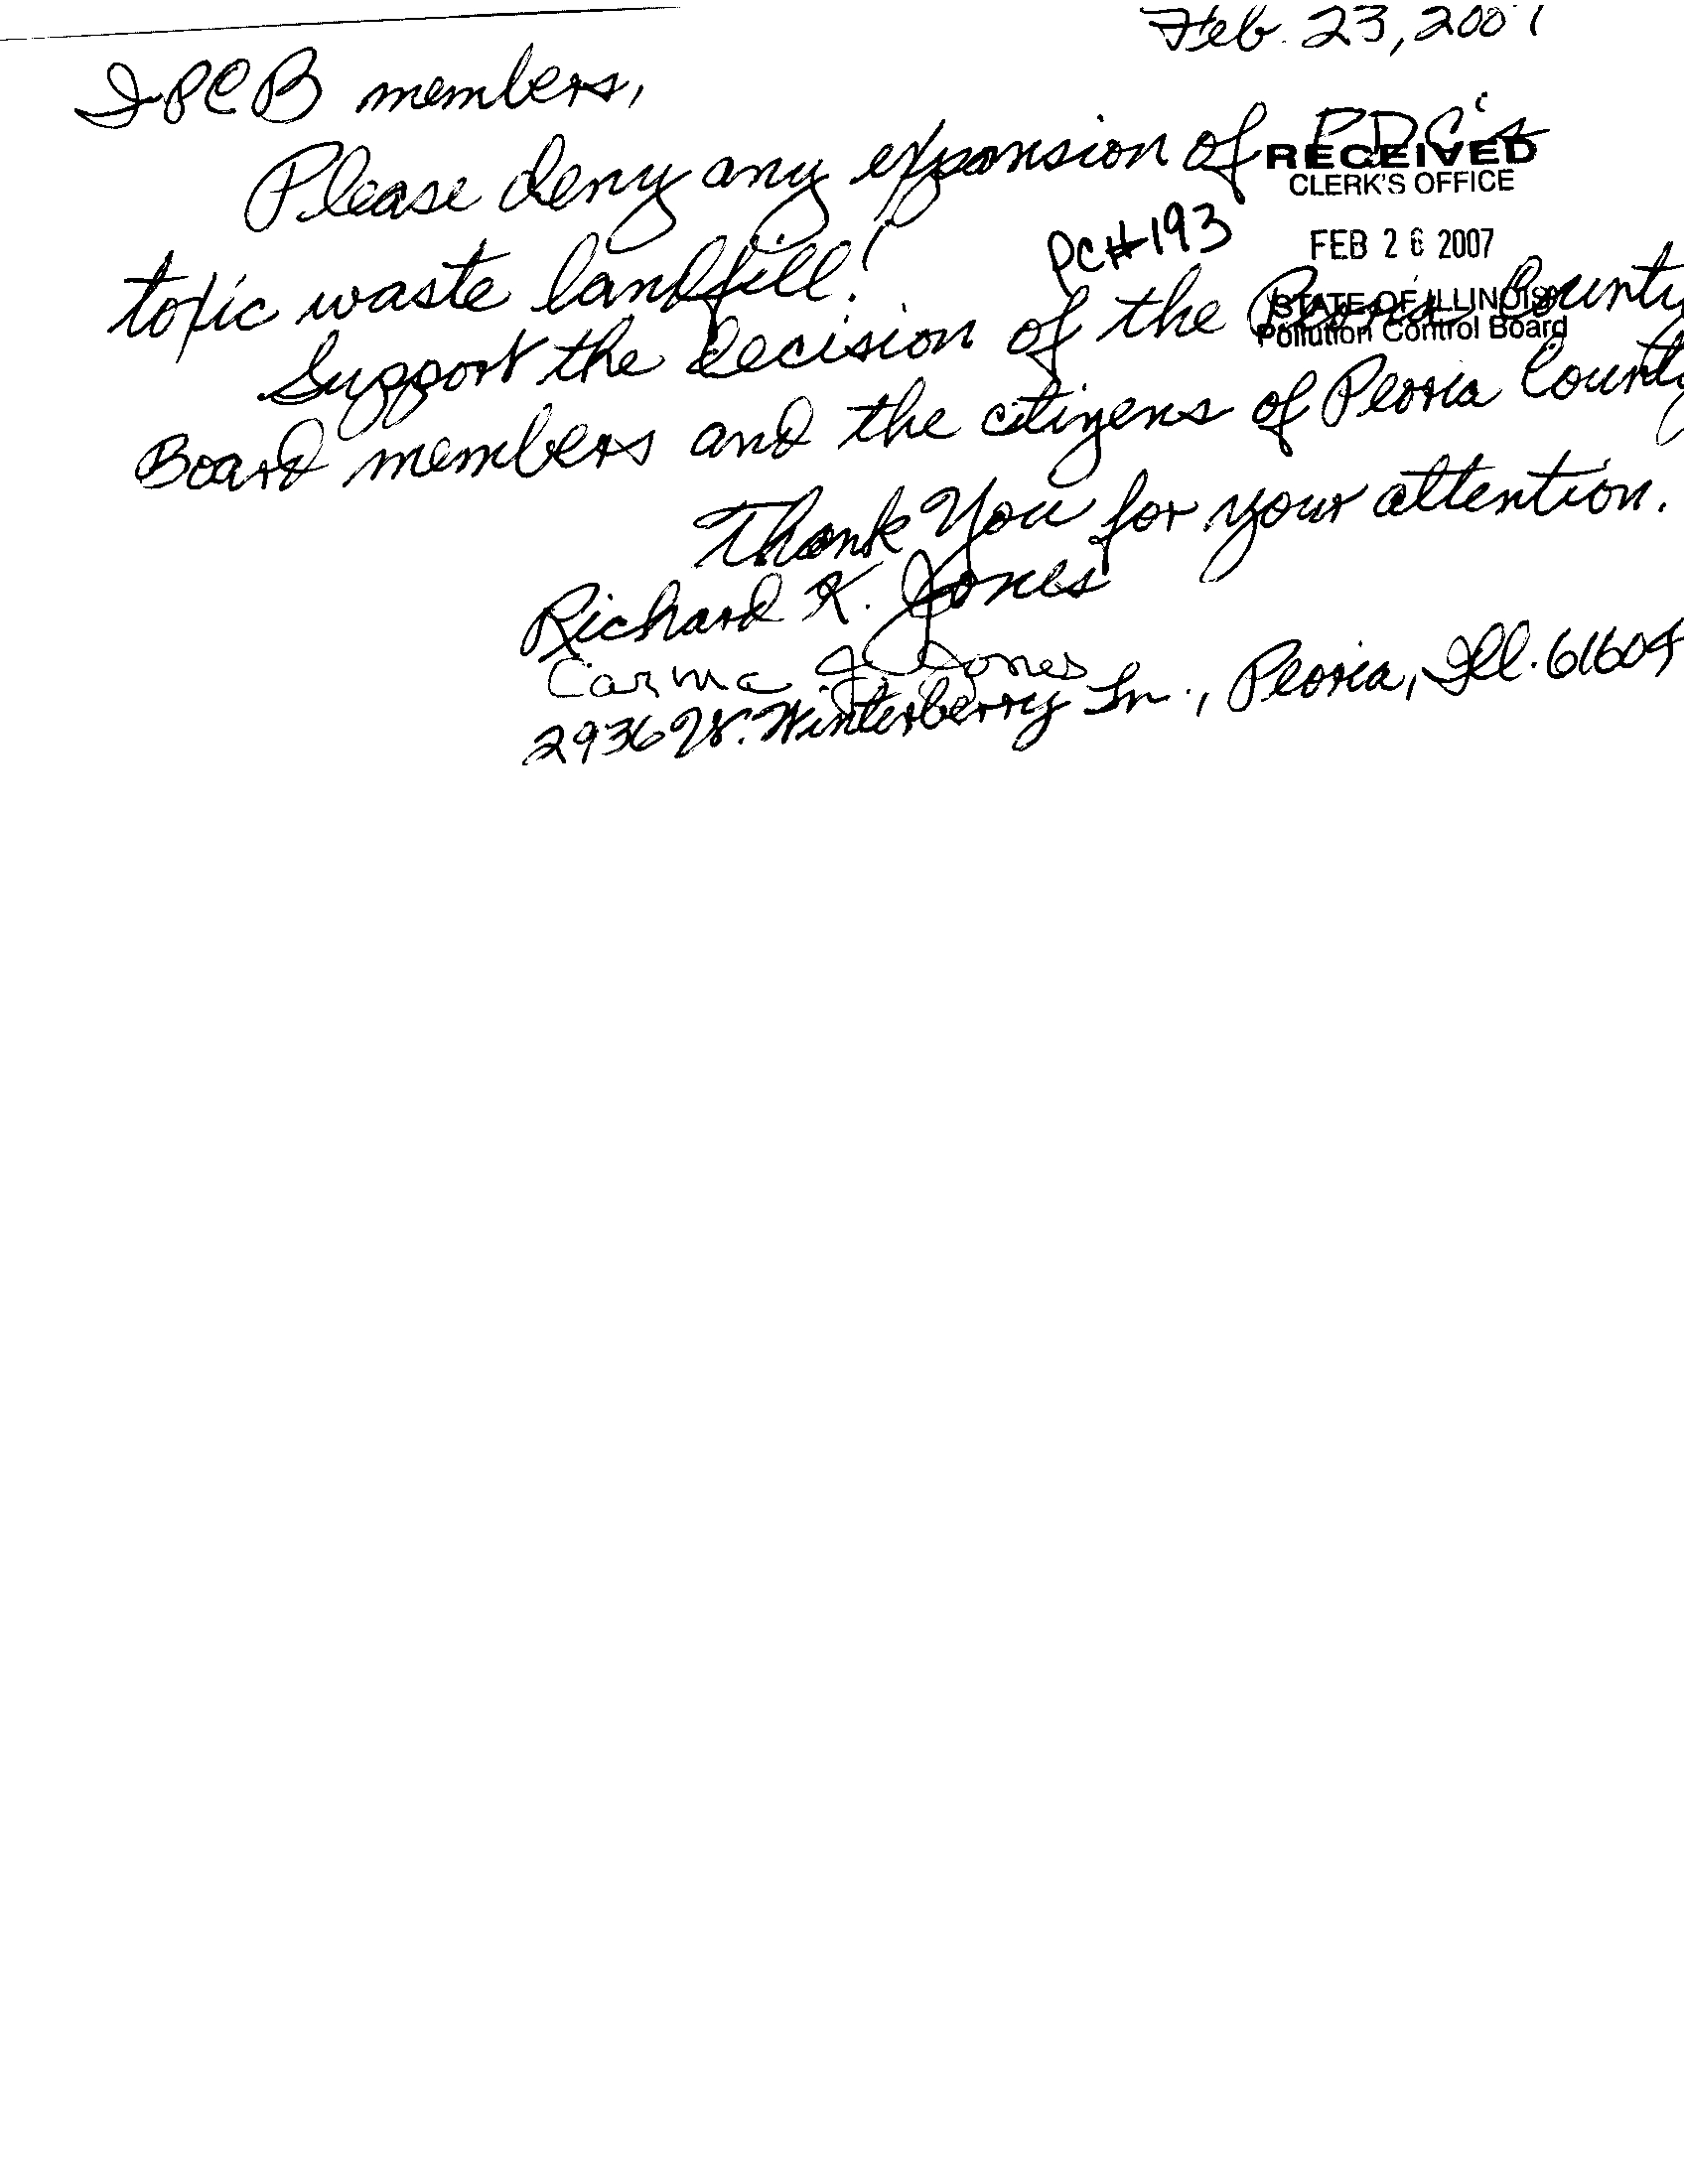 Feb. 23, 2007
IPCB members,
Please deny any expansion of PDC's
RECEIVED
CLERK'S OFFICE
PC#193
FEB 26 2007
toxic waste landfill!
STATE OF ILLINOIS
Pollution Control Board
Support the decision of the Peoria County
Board members and the citizens of Peoria County
Thank You for your attention.
Richard K. Jones
Carma J. Jones
2936 W. Winterberry Ln., Peoria, Ill. 61604